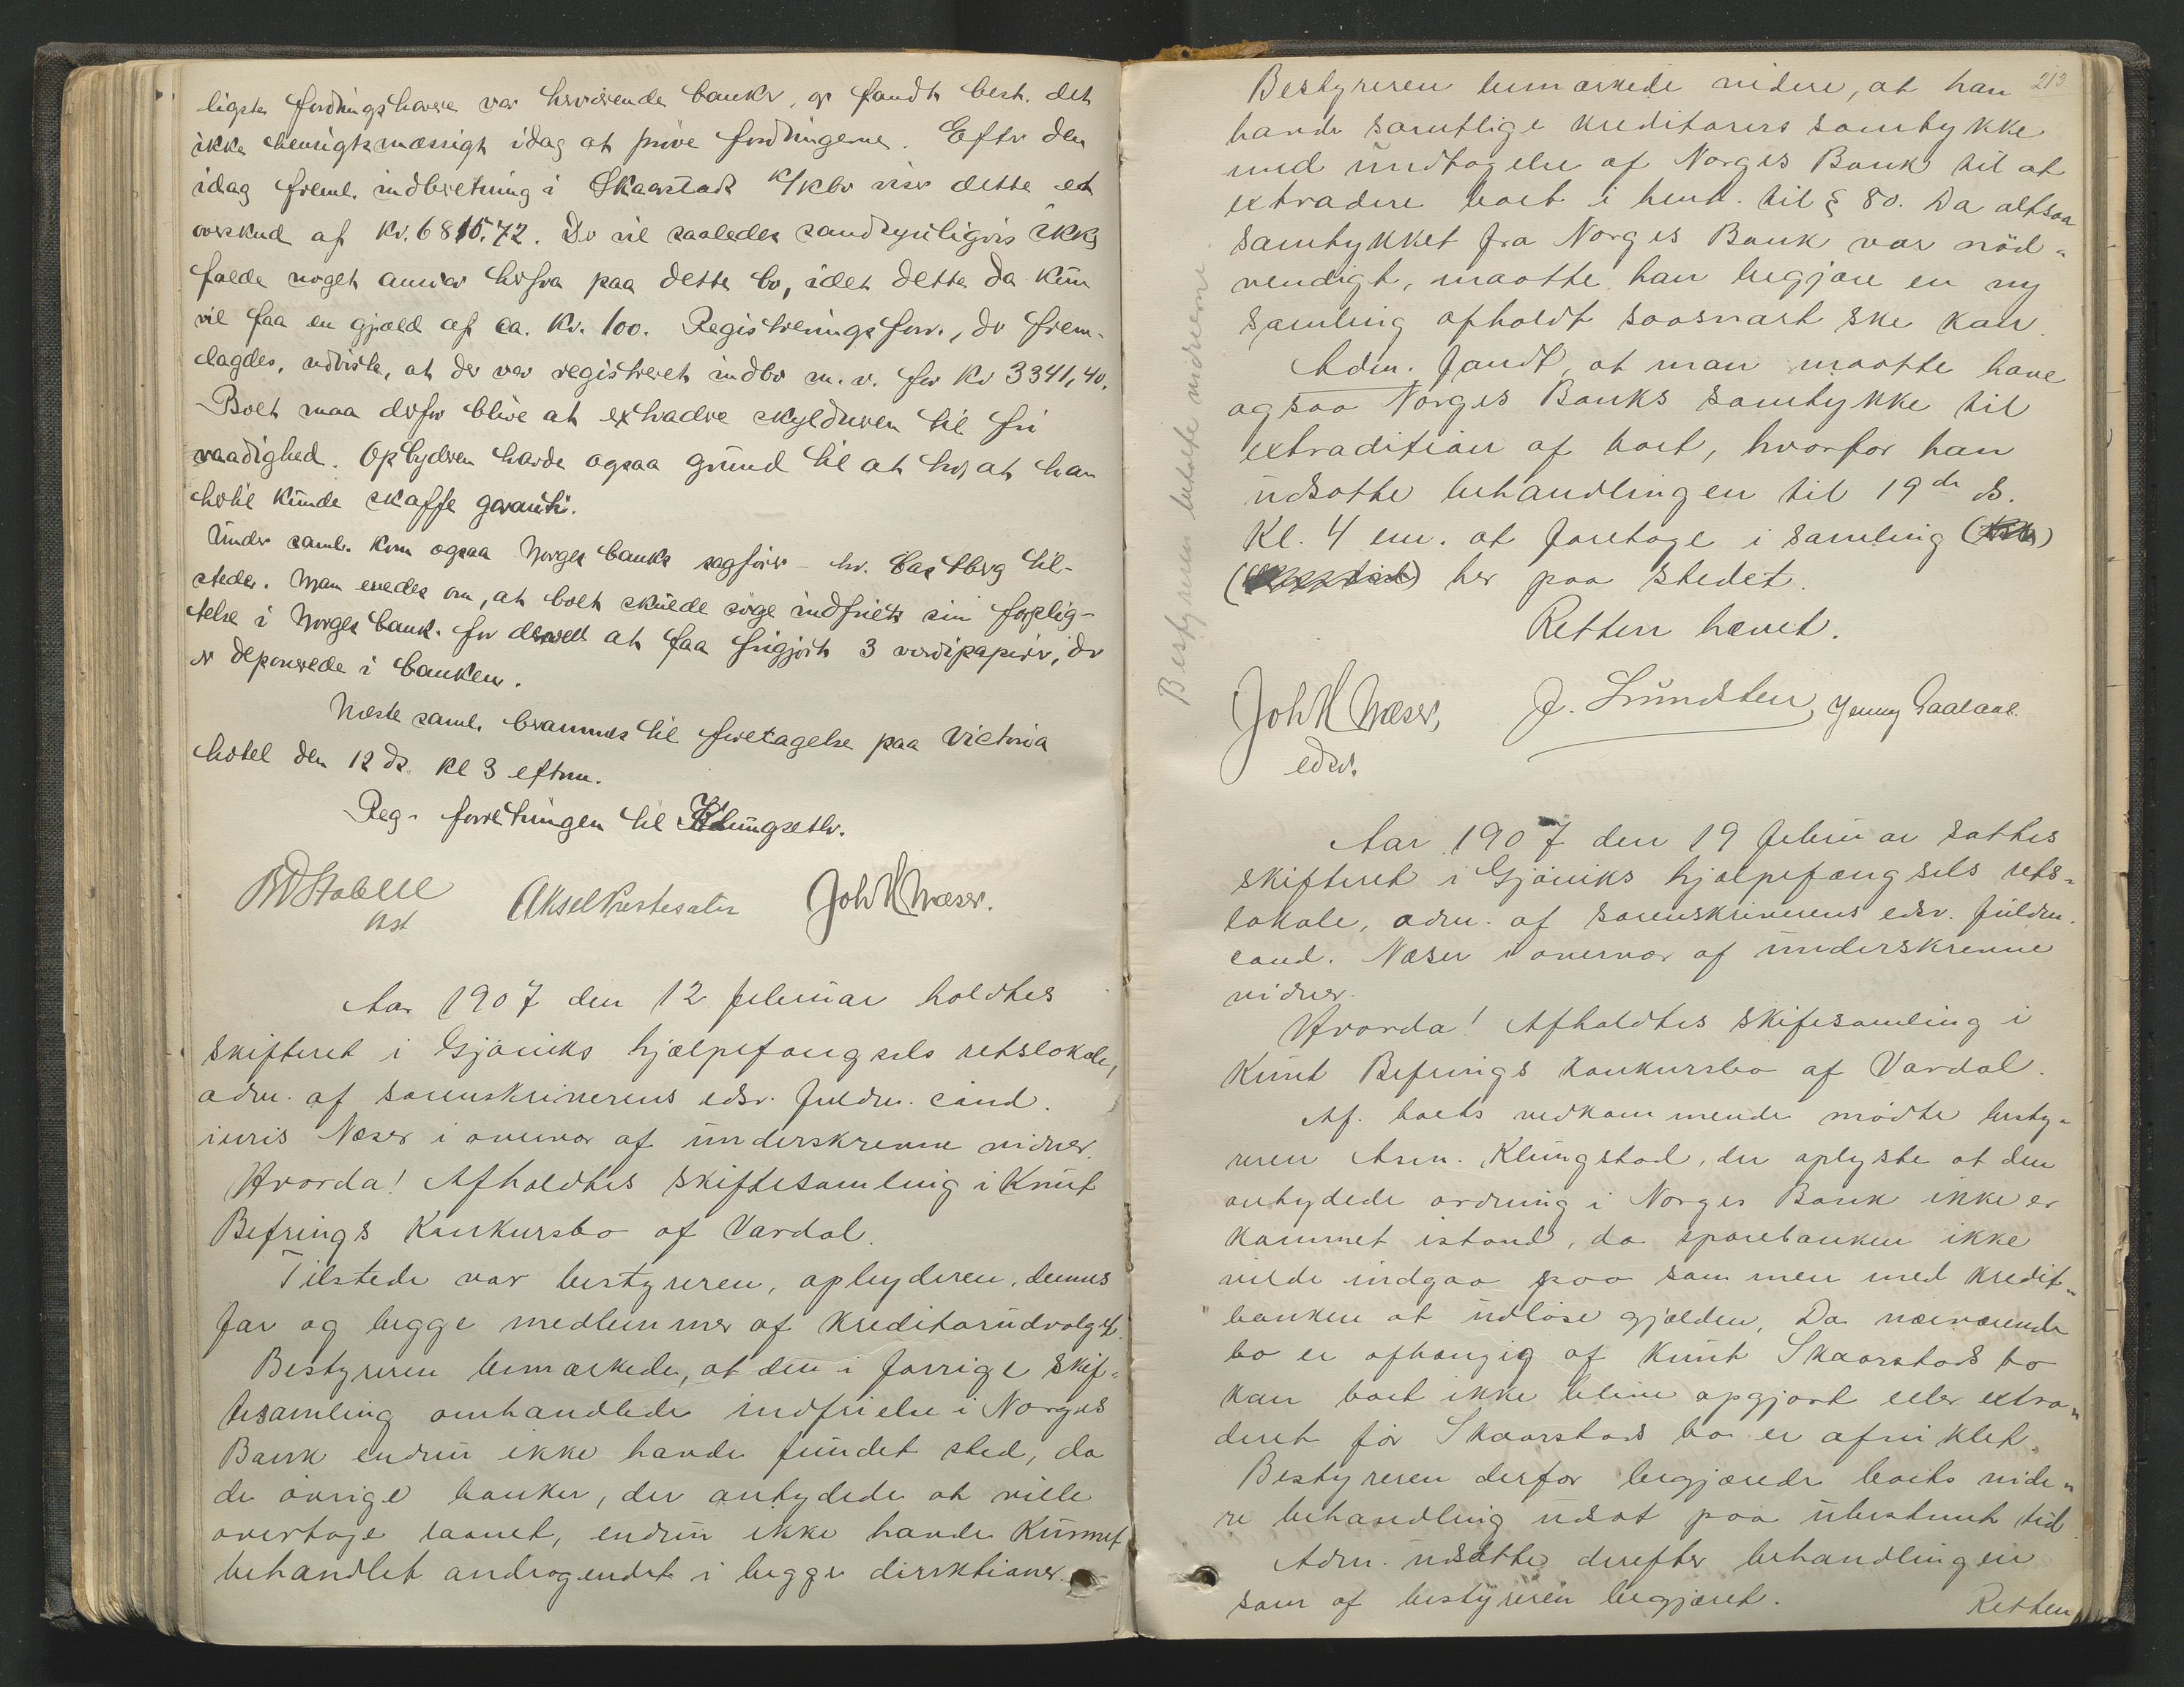 ligste fordringshavere var herværende banker, gr fandt best. det
ikke hensigtsmæssigt idag at prøve fordringerne. Efter den
idag freml. indberetning i Skaarstad k/kbo viser dette et
overskud af Kr. 6815.72. Der vil saaledes sandsynligvis ikke
falde noget ansvar herfra paa dette bo, idet dette da kun
vil faa en gjæld af ca. Kr. 100. Registreringsforr., der frem-
lagdes, udviste, at der var registreret indbo m. v. for Kr 3341,40.
Boet maa derfor blive at extradere skyldneren til fri
raadighed. Opbyderen havde ogsaa grund til at tro, at han
hertil kunde skaffe garanti.
Under saml. kom ogsaa Norges banks sagfører - hr. Castberg til-
stede. Man enedes om, at boet skulde søge indfriet sin forplig-
telse i Norges bank. for derved at faa frigjort 3 verdipapirer, der
er deponerede i banken.
Næste saml. berammes til foretagelse paa Victoria
hotel den 12 ds. kl 3 efterm.
Reg- forretningen til Klungseth.
BDStabell
Aksel Prestesæter
Joh H Næser.
Aar 1907 den 12 februar holdtes
skifteret i Gjøviks hjælpefængsels retslokale,
adm. af sorenskriverens edsv. fuldm. cand.
iuris Næser i overvær af underskrevne vidner.
Hvorda! Afholdtes skiftesamling i Knut
Befrings konkursbo af Vardal.
Tilstede var bestyreren, opbyderen, dennes
far og begge medlemmer af kreditorudvalget.
Bestyreren bemærkede, at den i forrige skif-
tesamling omhandlede indfrielse i Norges
Bank endnu ikke havde fundet sted, da
de øvrige banker, der antydede at ville
overtage laanet, endnu ikke havde kunnet
behandlet andragendet i begge direktioner.
213
Bestyreren bemærkede videre, at han
havde samtlige kreditorers samtykke
med undtagelse af Norges Bank til at
extradere boet i henh. til § 80. Da altsaa
samtykket fra Norges Bank var nød-
vendigt, maatte han begjære en ny
samling afholdt saasnart ske kan.
Adm. fandt, at man maatte have
ogsaa Norges Banks samtykke til
extradition af boet, hvorfor han
udsatte behandlingen til 19de ds.
Kl. 4 em. at foretage i samling
her paa stedet.
Retten hævet.
Joh H Næser, J. Lundsten, Jenny Gaalaas.
edsv.
Bestyreren beholdte vidnerne
Aar 1907 den 19 februar sattes
skifteret i Gjøviks hjælpefængsels rets-
lokale, adm. af sorenskriverens edsv. fuldm.
cand. Næser i overvær af underskrevne
vidner.
Hvorda! Afholdtes skiftesamling i
Knut Befrings konkursbo af Vardal.
Af boets vedkommende mødte besty-
reren Asm. Klungstad, der oplyste at den
antydede ordning i Norges Bank ikke er
kommet istand, da sparebanken ikke
vilde indgaa paa sammen med kredit-
banken at udløse gjælden. Da nærværende
bo er afhængig af Knut Skaarstads bo
kan boet ikke blive opgjort eller extra-
deret før Skaarstads bo er afviklet.
Bestyreren derfor begjærede boets vide-
re behandling udsat paa ubestemt tid
Adm. udsatte derefter behandlingen
som af bestyreren begjæret.
Retten